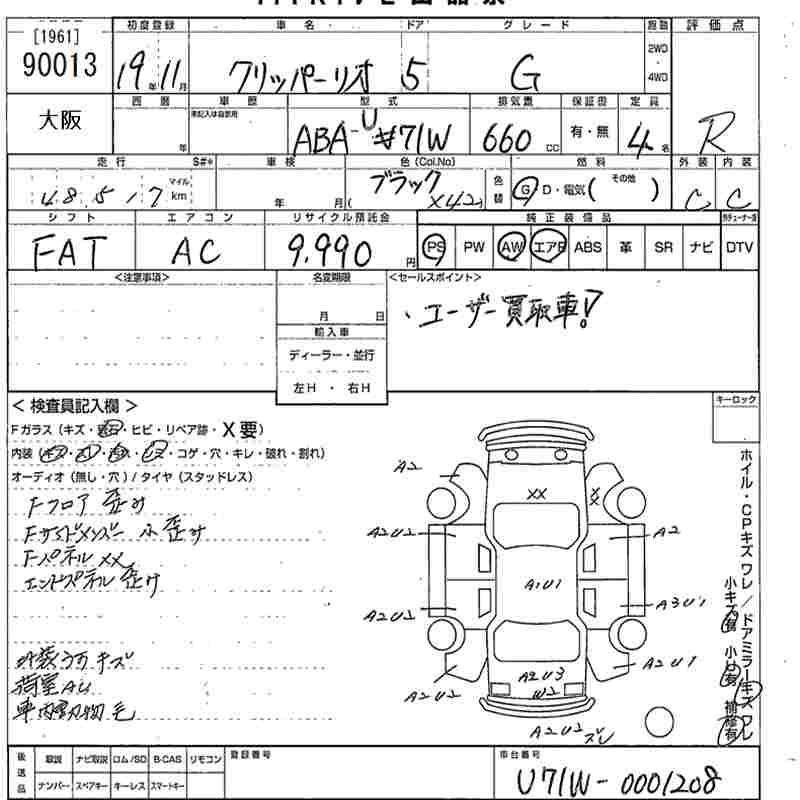 [1961]
90013
初度登録 車名 ドア グレード 駆動 評価点
19年 11月 クリッパーリオ 5 G 2WD・4WD R
大阪
西暦 車歴 型式 排気量 保証書 定員
年 未記入は自家用 ABA-U#71W 660cc 有・無 4名
走行 S#* 車検 色(Col.No) 燃料 外装 内装
48,517 マイル km 年 月 ブラック (X42) 色替 G・D・電気( その他 ) C C
シフト エアコン リサイクル預託金 純正装備品
FAT AC 9,990円 PS PW AW エアB ABS 革 SR ナビ DTV
<注意事項> 名変期限 <セールスポイント>
月 日
輸入車
ディーラー・並行
左H・右H
、ユーザー買取車!
<検査員記入欄>
Fガラス(キズ・飛石・ヒビ・リペア跡・X要)
内装 ・コゲ・穴・キレ・破れ・割れ)
オーディオ(無し・穴)/タイヤ(スタッドレス)
Fフロア 歪み
Fサイドメンバー 小歪み
Fパネル XX
エンドパネル 歪み
外装 キズ
荷室AU
キーロック
ホイル・CPキズ ワレ/ドアミラーキズ ワレ
小キズ有 小U有 補修有
A2
XX
XX
A2U2
A2
A1U1
A2U2
A3U1
A2U3
W2
A2U2
A2U1
A2U2 ズレ
後送品
取説 ナビ取説 ロム/SD B-CAS リモコン
ナンバー スペアキー キーレス スマートキー
登録番号
車台番号
U71W-0001208